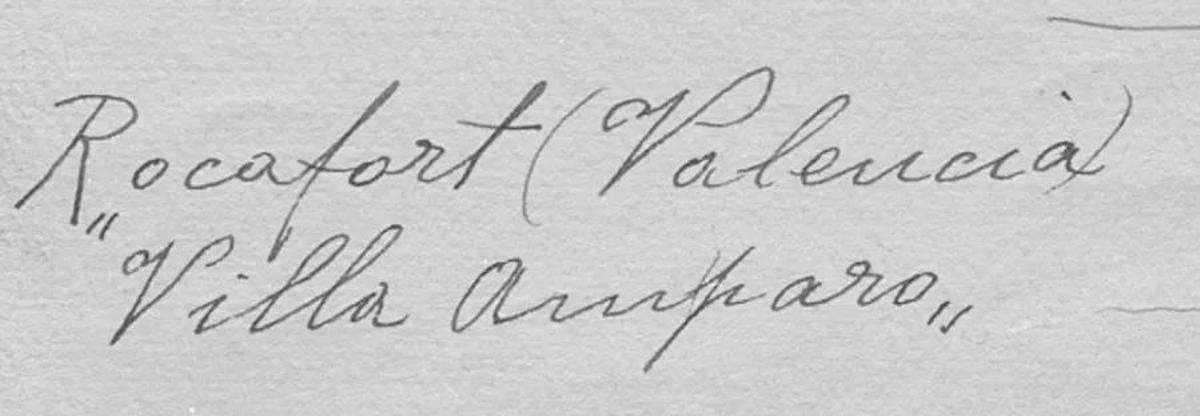 Rocafort (Valencia)
"Villa Amparo„